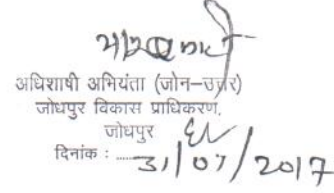 अधिशाषी अभियंता (जोन–उत्तर)
जोधपुर विकास प्राधिकरण,
जोधपुर
दिनांक : ...... 31/07/2017